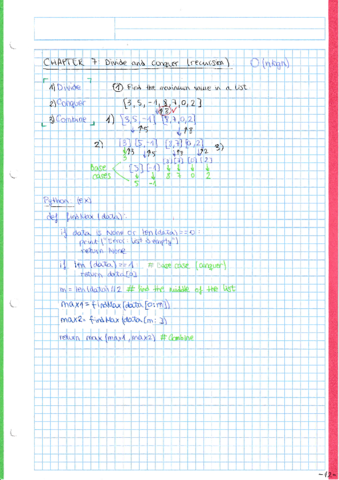 CHAPTER 7 Divide and Conquer (recursion) O(nlogn)
1) Divide ① Find the maximum value in a list
2) Conquer [3, 5, -1, 8, 7, 0, 2]
3) Combine 1) [3, 5, -1] [8, 7, 0, 2]
5 8
2) [3] [5, -1] [8, 7] [0, 2] 3)
3 5 8 2
Base [5] [-1] [8] [7] [0] [2]
cases 5 -1 8 7 0 2
Python (Ex)
def findMax(data):
if data is None or len(data)==0:
print("Error: list is empty")
return None
if len(data)==1 # base case (conquer)
return data[0]
m = len(data)//2 # find the middle of the list
max1 = findMax(data[0:m])
max2 = findMax(data[m: ])
return max(max1, max2) # Combine
-12-